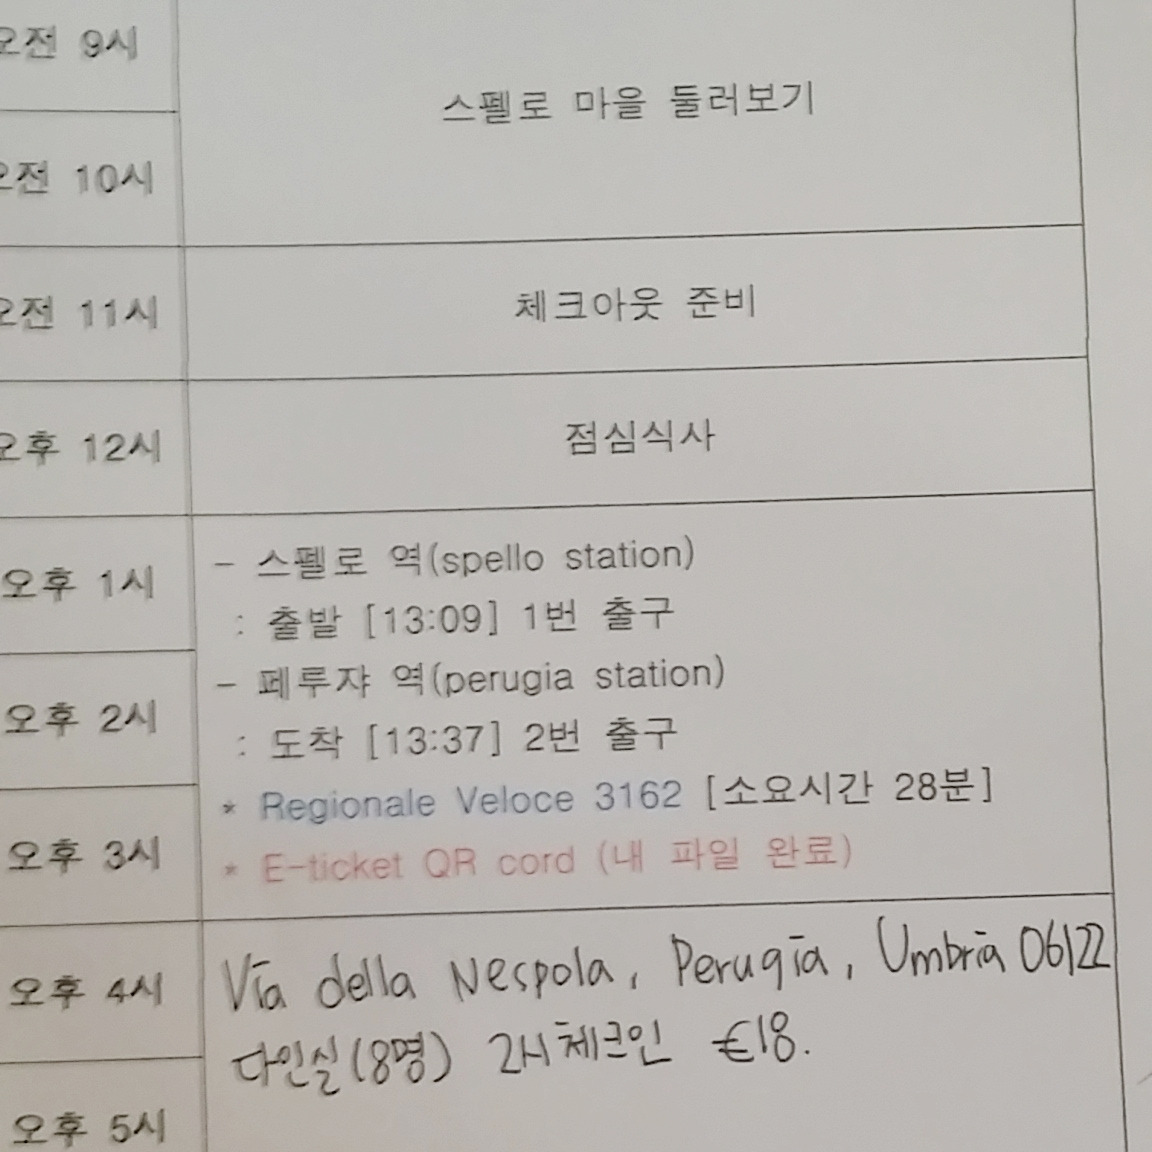 오전 9시
스펠로 마을 둘러보기
오전 10시
오전 11시
체크아웃 준비
오후 12시
점심식사
오후 1시
- 스펠로 역(spello station)
: 출발 [13:09] 1번 출구
오후 2시
- 페루쟈 역(perugia station)
: 도착 [13:37] 2번 출구
* Regionale Veloce 3162 [소요시간 28분]
오후 3시
* E-ticket QR cord (내 파일 완료)
오후 4시
Via della Nespola, Perugia, Umbria 06122
다인실(8명) 2시 체크인 €18.
오후 5시